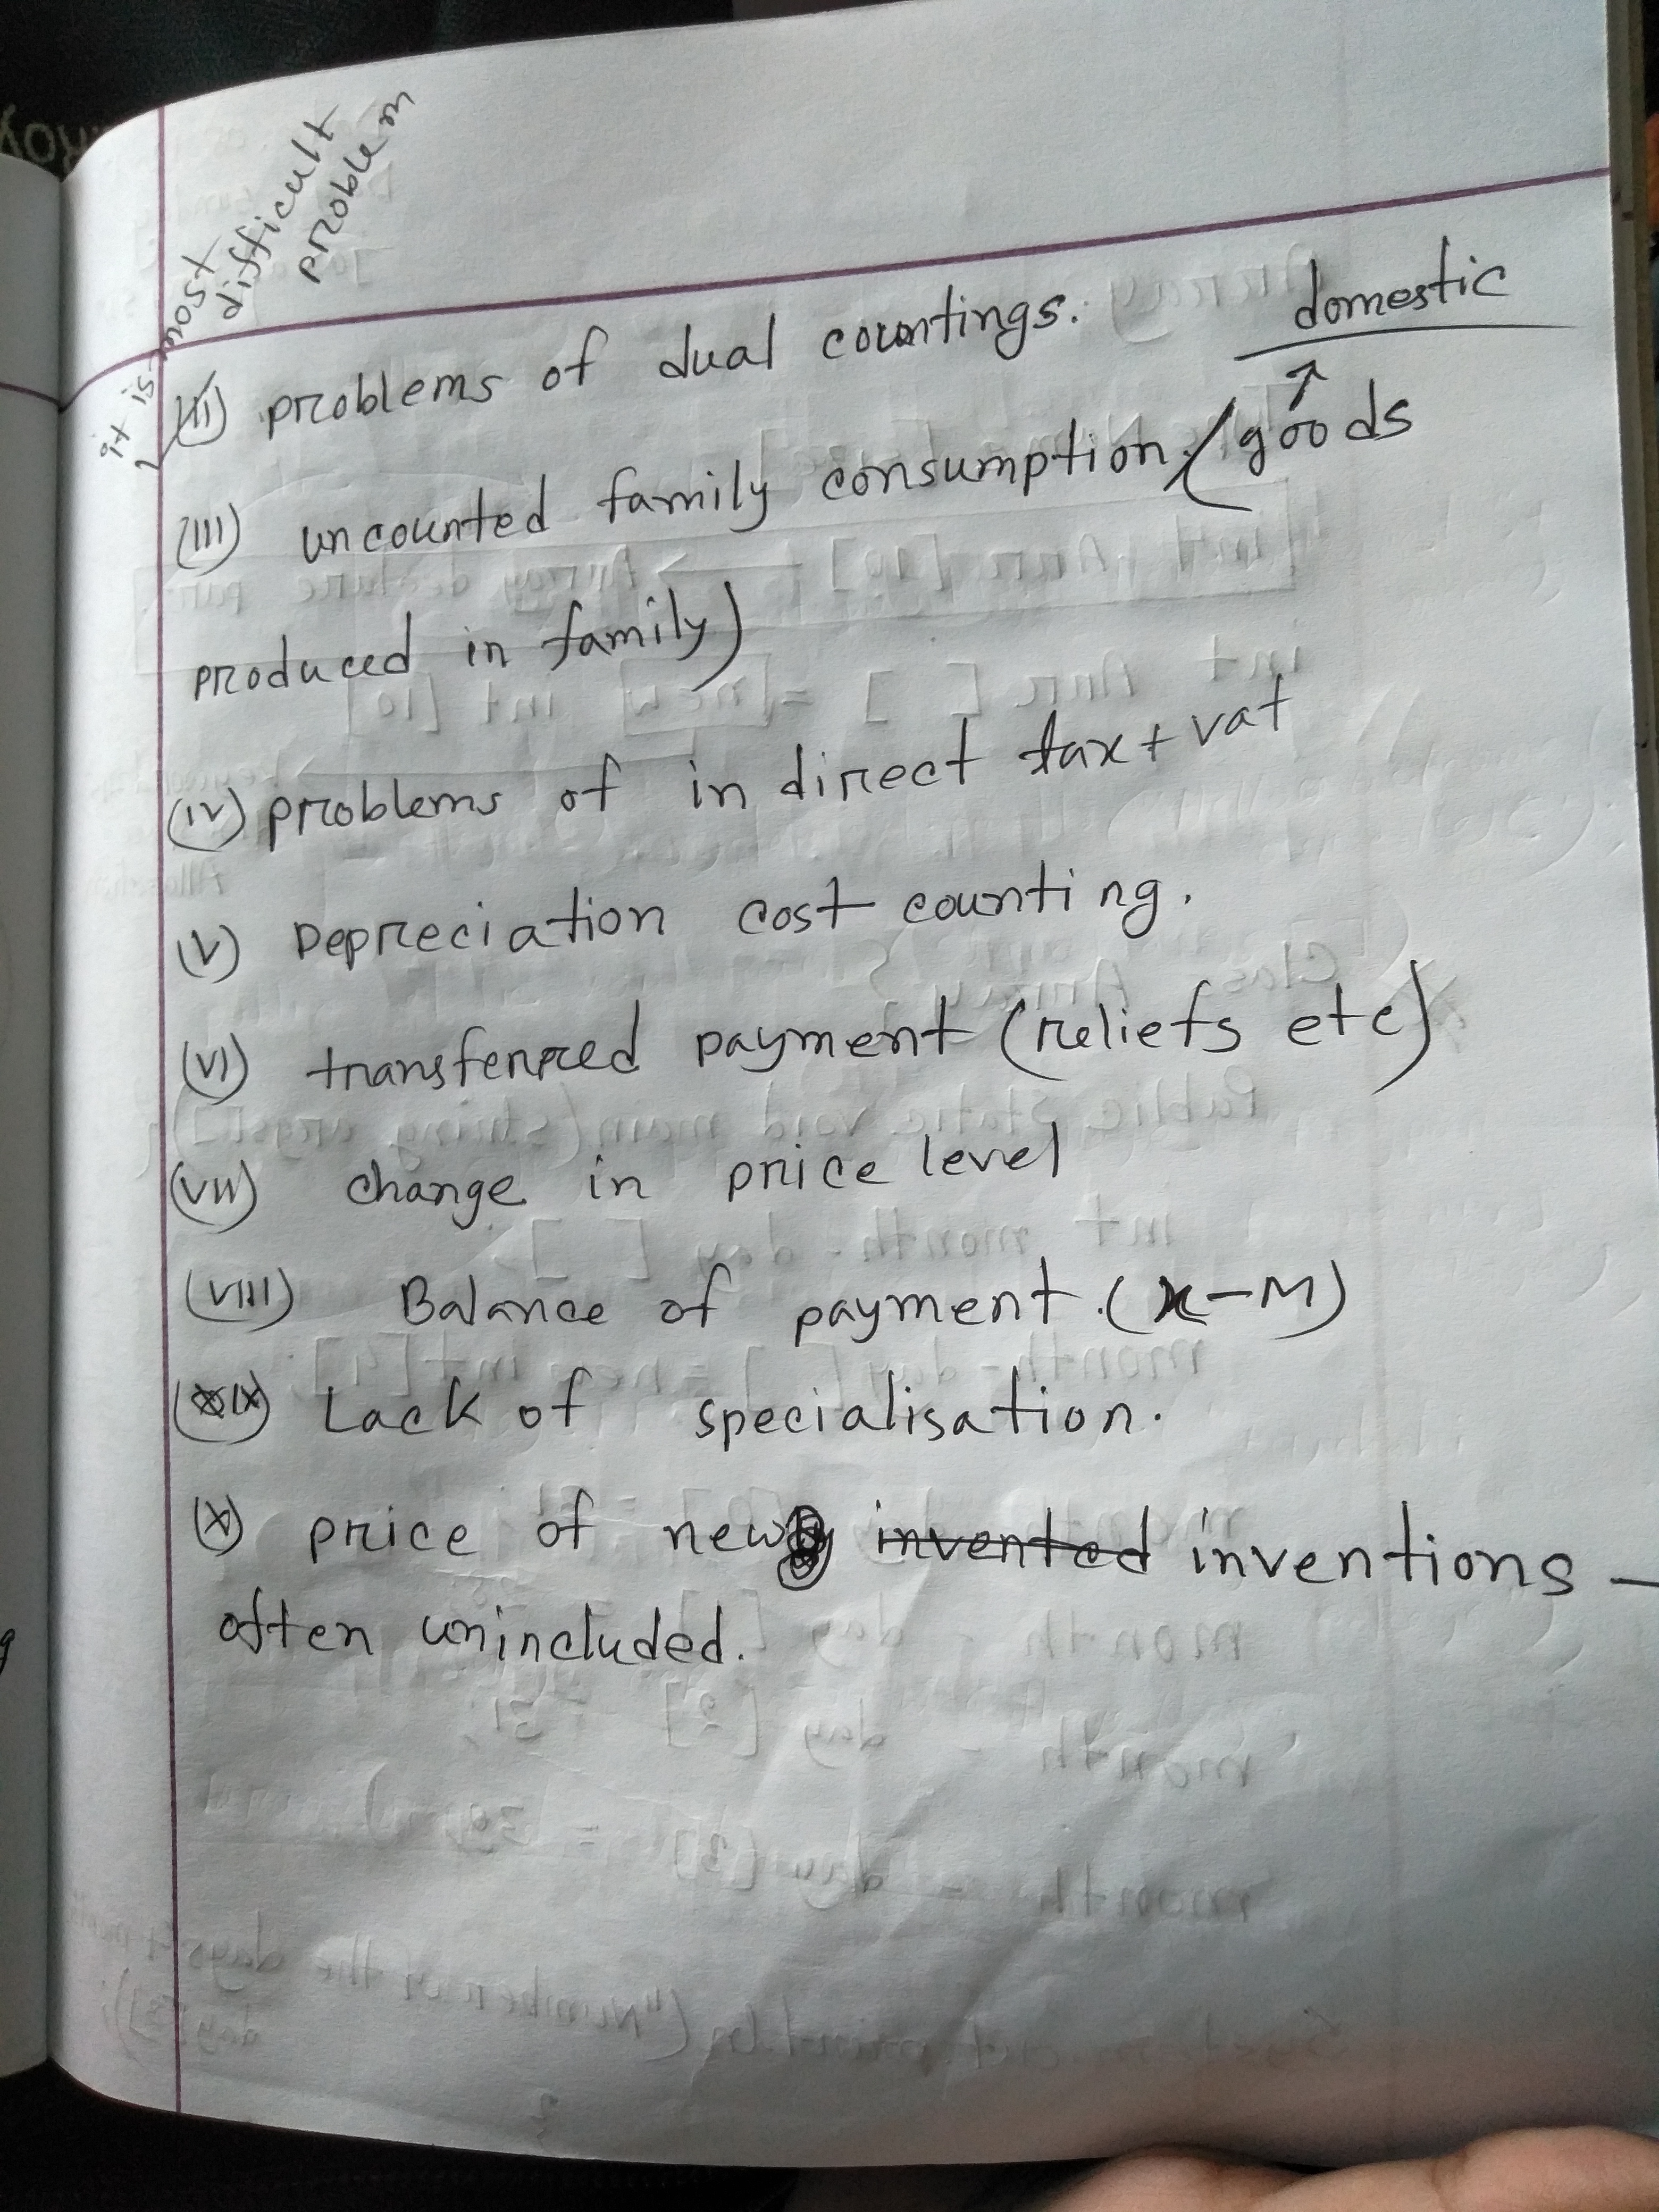 it is most
difficult
problem
(II) problems of dual countings.
domestic
↑
(III) uncounted family consumption. (goods
produced in family)
(IV) problems of in direct tax + vat
(V) Depreciation cost counting.
(VI) transferred payment (reliefs etc)
(VII) change in price level
(VIII) Balance of payment. (X-M)
(IX) Lack of specialisation.
(X) price of new invented inventions -
often unincluded.